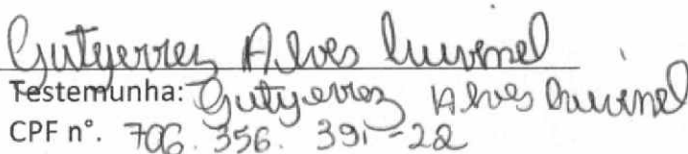 Gutyerrez Alves Cruvinel
Testemunha: Gutyerrez Alves Cruvinel
CPF n°. 706. 356. 391-22